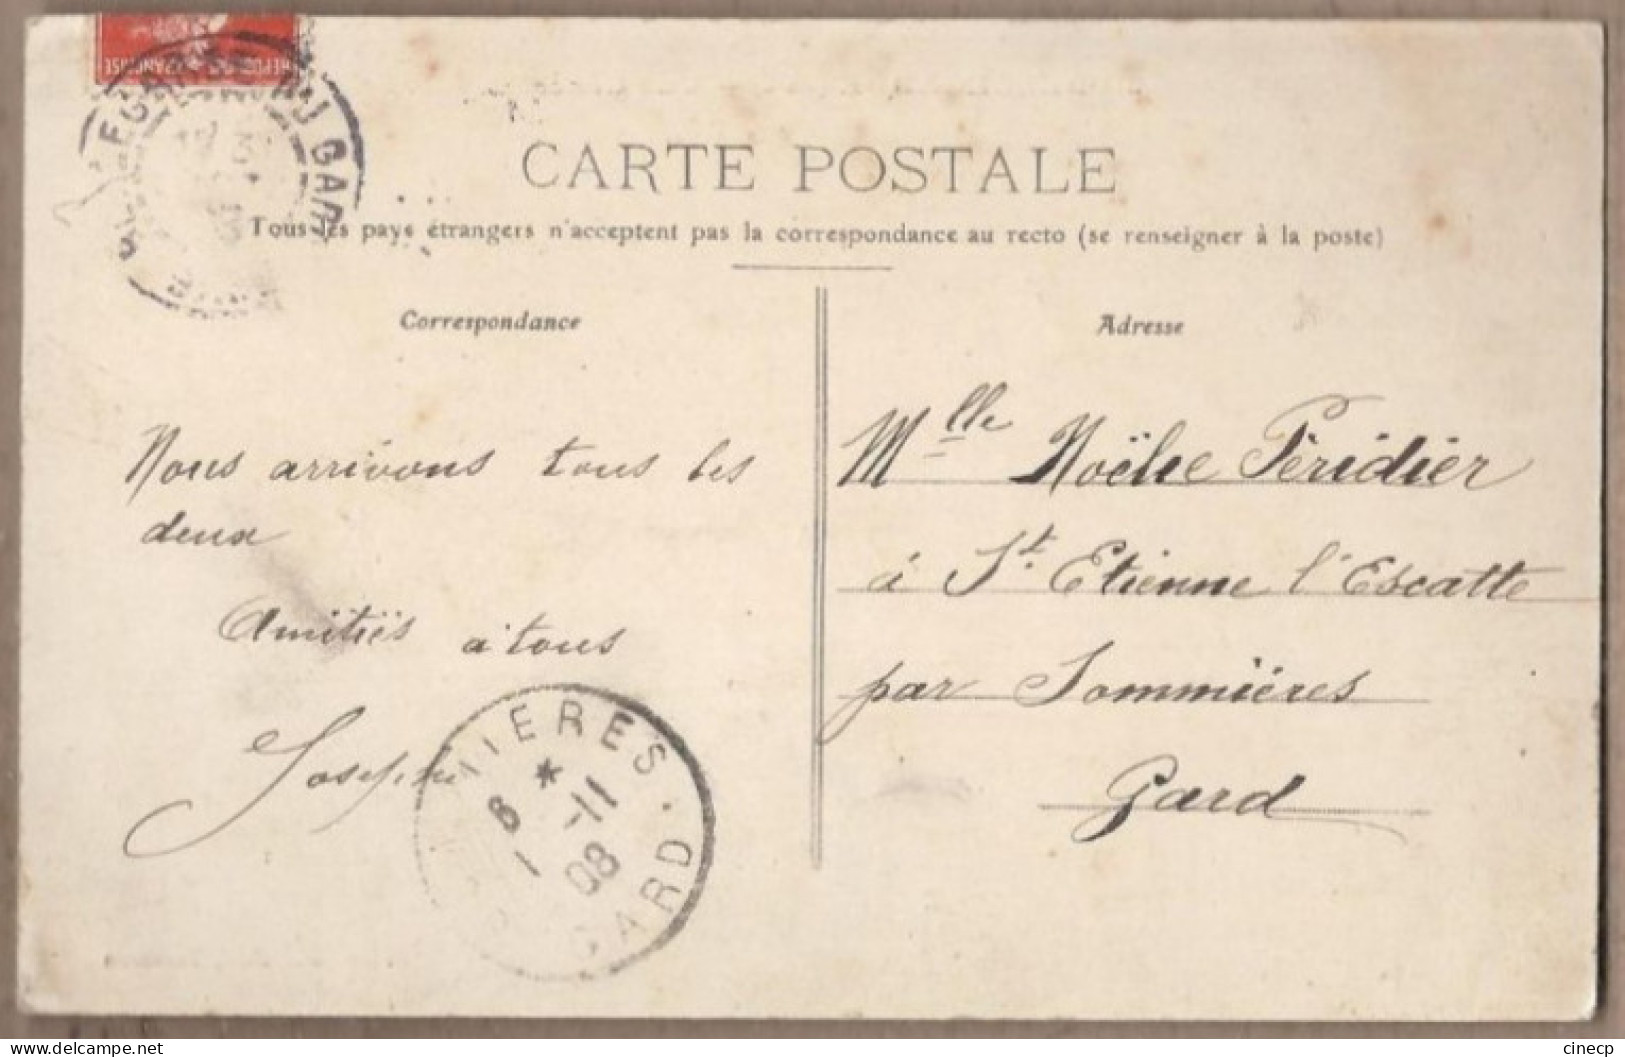 RÉPUBLIQUE FRANÇAISE
DU GARD
CARTE POSTALE
Tous les pays étrangers n'acceptent pas la correspondance au recto (se renseigner à la poste)
Correspondance
Nous arrivons tous les
deux
Amitiés à tous
Joseph
MIERES
*
-11
08
GARD
Adresse
Mlle Noëlie Péridier
à St. Etienne l'Escatte
par Sommières
Gard
www.delcampe.net
cinecp